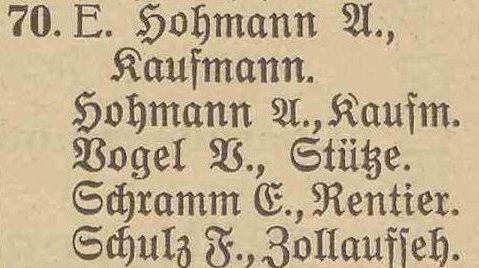 70. E. Hohmann A.,
Kaufmann.
Hohmann A., Kaufm.
Vogel V., Stütze.
Schramm E., Rentier.
Schulz F., Zollaufseh.